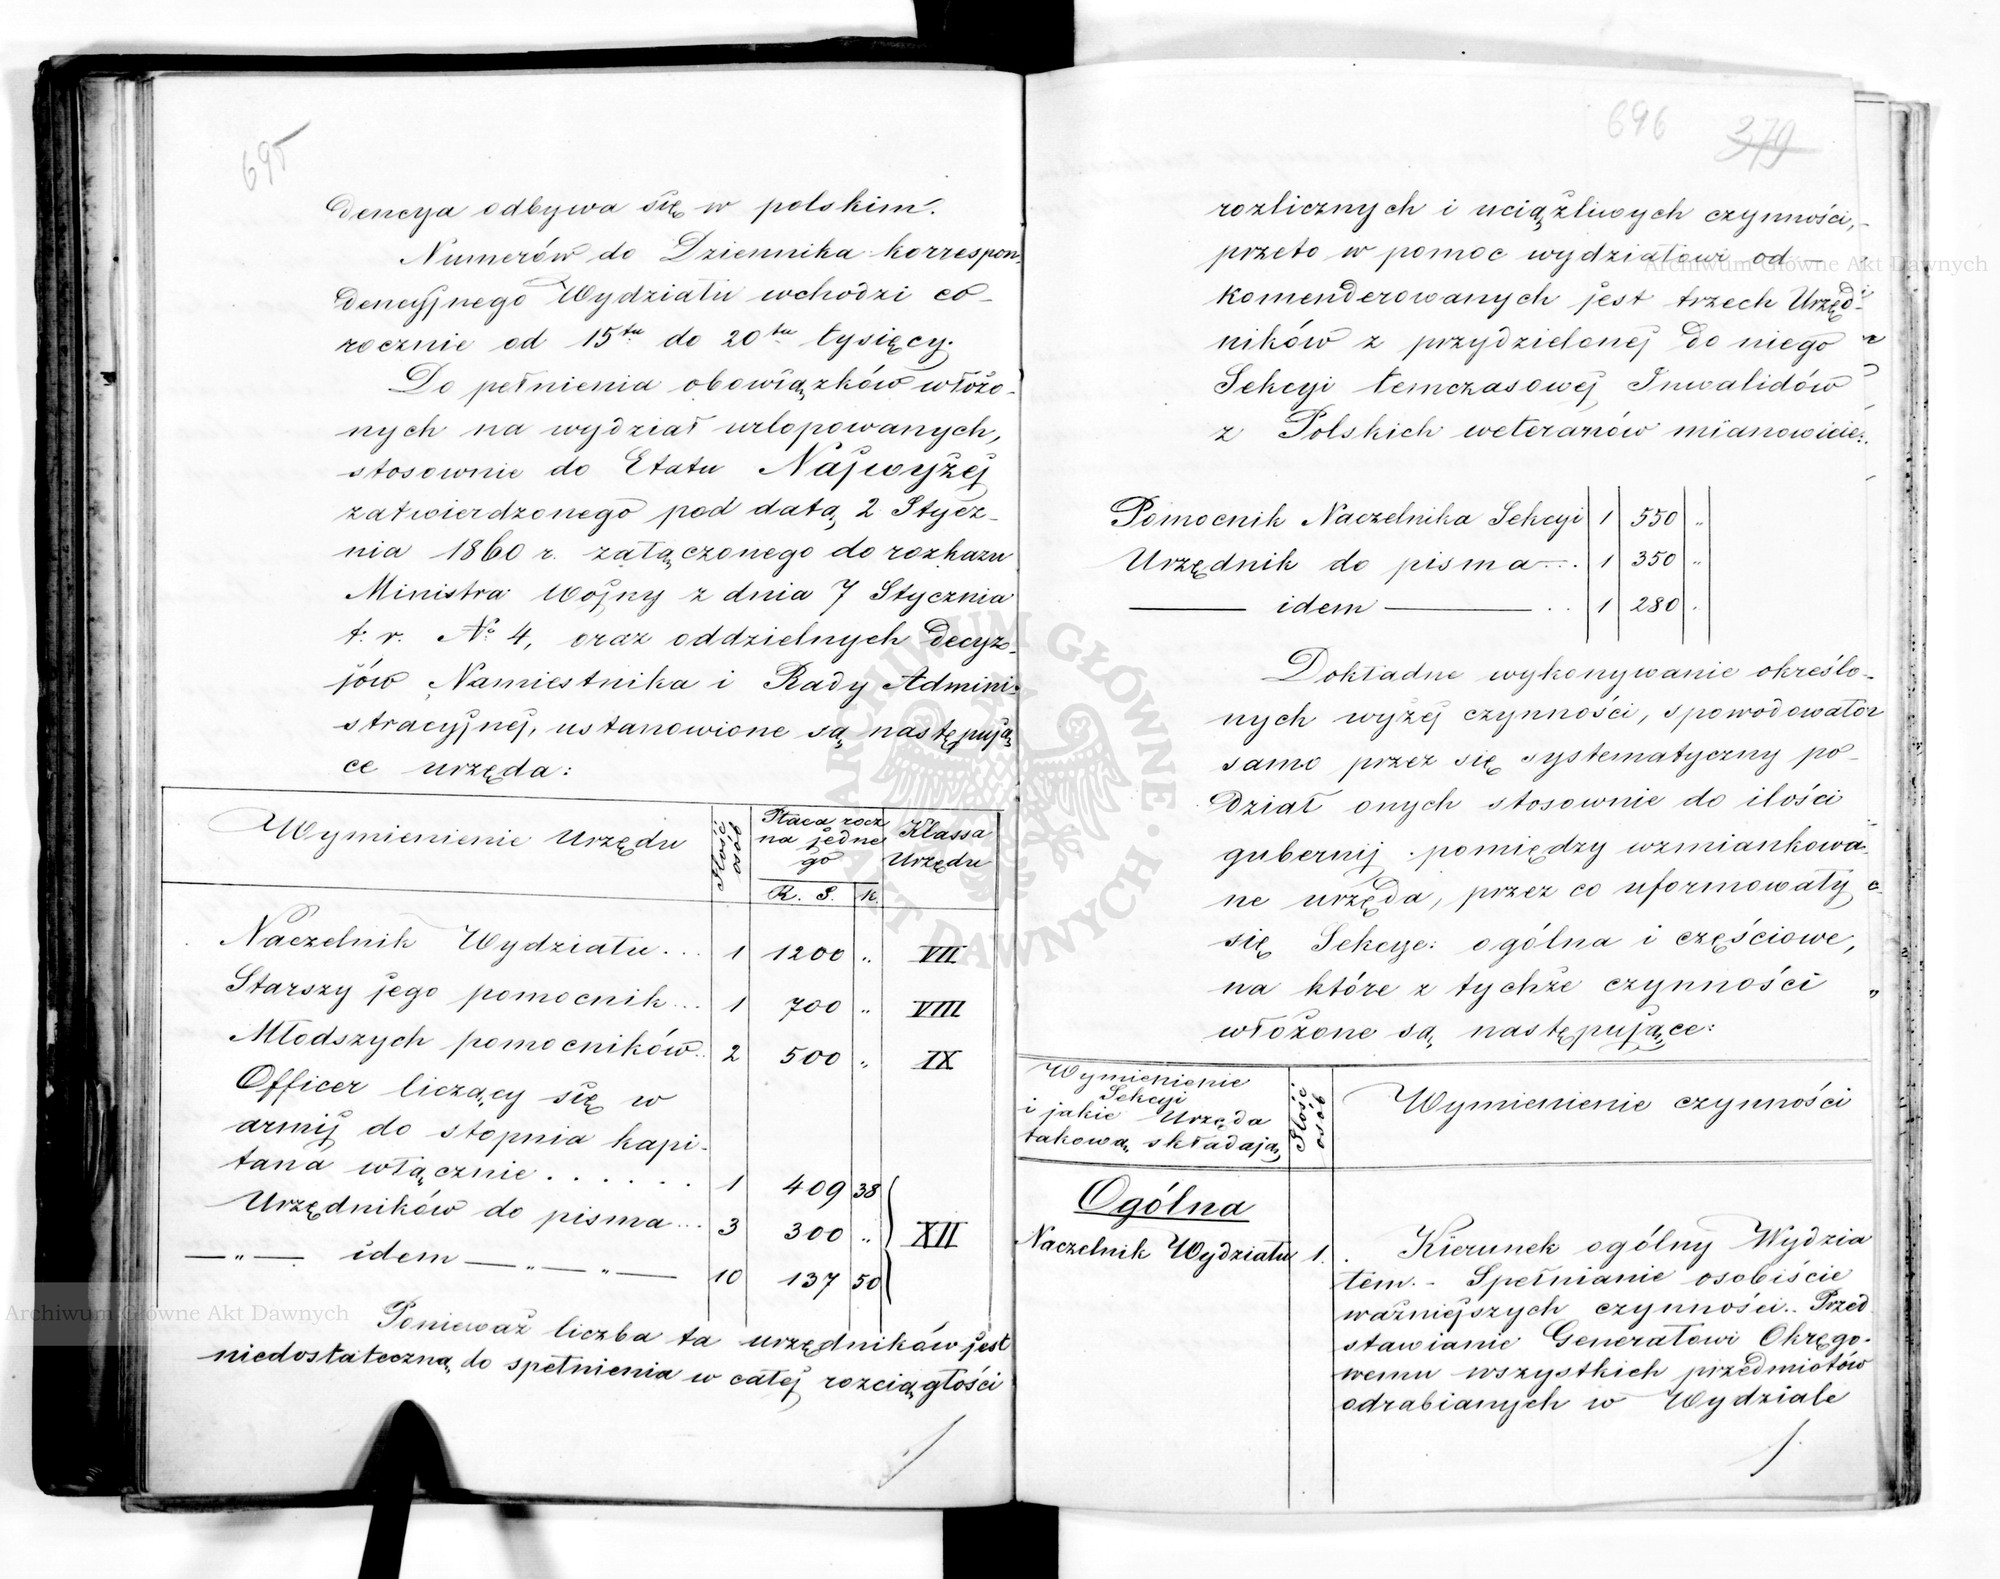 695
dencya odbywa się w polskim.
Numerów do Dziennika korrespon-
dencyjnego Wydziału wchodzi co-
rocznie od 15tu do 20tu tysięcy.
Do pełnienia obowiązków włożo-
nych na wydział urlopowanych,
stosownie do Etatu Najwyżej
zatwierdzonego pod datą 2 Stycz-
nia 1860 r. załączonego do rozkazu
Ministra Wojny z dnia 7 Stycznia
t. r. No 4, oraz oddzielnych decyz-
jów Namiestnika i Rady Admini-
stracyjnej, ustanowione są następują
ce urzęda:
Wymienienie Urzędu | Ilość osób | Płaca rocz na jedne go R. S. k. | Klassa Urzędu
Naczelnik Wydziału... 1 1200 „ VII
Starszy jego pomocnik... 1 700 „ VIII
Młodszych pomocników.. 2 500 „ IX
Officer liczący się w
armij do stopnia kapi-
tana włącznie . . . . . . 1 409 38
Urzędników do pisma... 3 300 „ XII
— „ — idem — „ — „ — 10 137 50
Ponieważ liczba ta urzędników jest
niedostateczną do spełnienia w całej rozciągłości
696 379
rozlicznych i uciążliwych czynności,
przeto w pomoc wydziałowi od-
komenderowanych jest trzech Urzęd-
ników z przydzielonej do niego
Sekcyi temczasowej Inwalidów
z Polskich weteranów mianowicie:
Pomocnik Naczelnika Sekcyi 1 550 „
Urzędnik do pisma... 1 350 „
— idem — .. 1 280 .
Dokładne wykonywanie określo-
nych wyżej czynności, spowodowało
samo przez się systematyczny po-
dział onych stosownie do ilości
gubernij pomiędzy wzmiankowa-
ne urzęda, przez co uformowały
się Sekcye: ogólna i częściowe,
na które z tychże czynności
włożone są następujące:
Wymienienie Sekcyi i jakie Urzęda takową składają | Ilość osób | Wymienienie czynności
Ogólna
Naczelnik Wydziału 1. Kierunek ogólny Wydzia
łem. - Spełnianie osobiście
ważniejszych czynności.. Przed
stawianie Generałowi Okręgo-
wemu wszystkich przedmiotów
odrabianych w Wydziale
Archiwum Główne Akt Dawnych
Archiwum Główne Akt Dawnych
ARCHIWUM GŁÓWNE AKT DAWNYCH